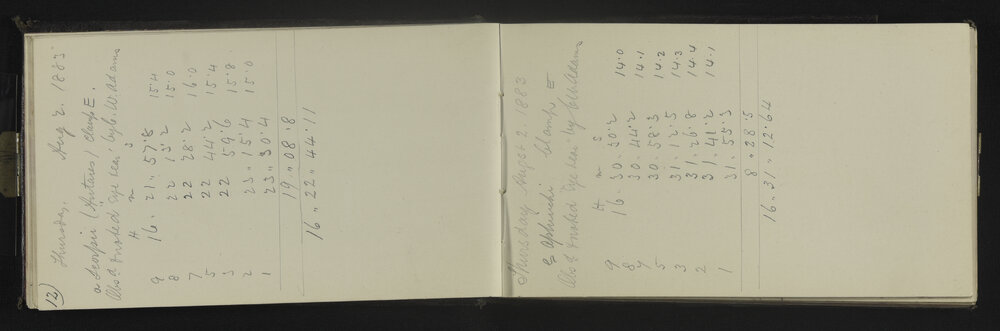 12)
Thursday. Aug 2. 1883
α Scorpii (Antares) Clamp E.
Obsd & noted Eye & ear by W. Adams
H m s
9 16.. 21.. 57.8 15.4
8 22 13.2 15.0
7 22 28.2 16.0
5 22 44.2 15.4
3 22 59.6 15.8
2 23.. 15.4 15.0
1 23.. 30.4
19.. 08.8
16.. 22.. 44.11
Thursday August 2. 1883
Ophiuchi Clamp E
Obsd & noted Eye & ear by C W Adams
H m s
9 16. 30. 30.2 14.0
8 30. 44.2 14.1
7 30. 58.3 14.2
5 31. 12.5 14.3
3 31. 26.8 14.4
2 31. 41.2 14.1
1 31. 55.3
8.. 28.5
16.. 31.. 12.64